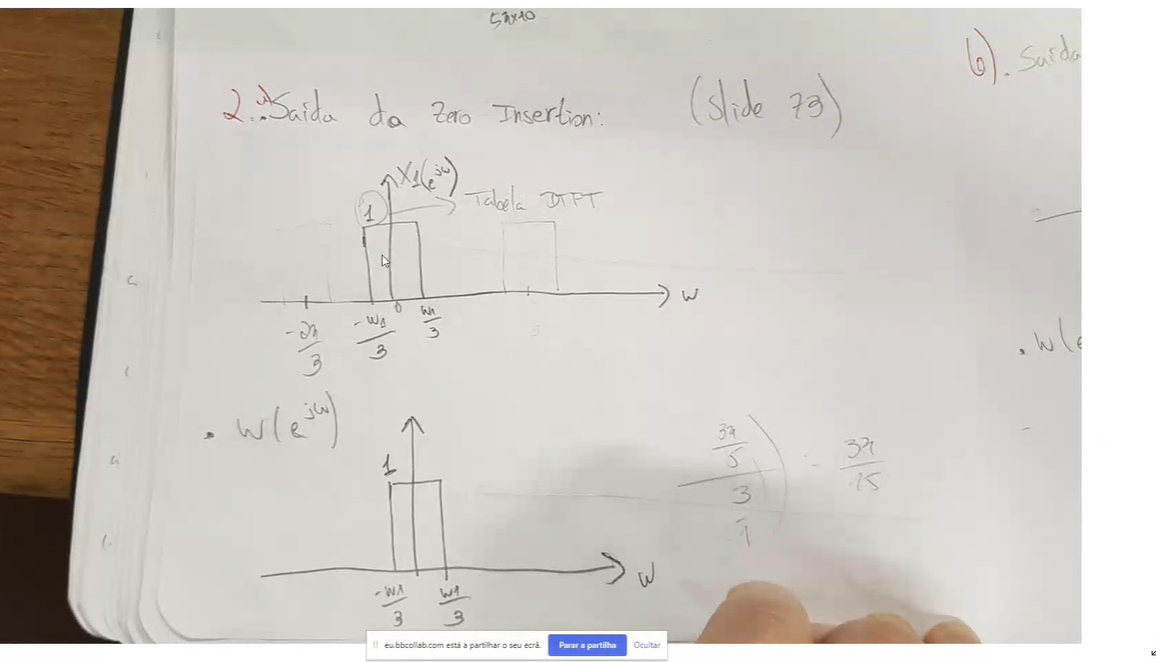 5π×10
2.a) Saída da Zero Insertion: (Slide 73)
b). Saída
X1(e^jω)
1 Tabela DTFT
-2π/3 -ω1/3 0 ω1/3 ω
. W(e
• W(e^jω)
1
3π/5 / 3/1 = 3π/15
-ω1/3 ω1/3 ω
eu.bbcollab.com está a partilhar o seu ecrã. Parar a partilha Ocultar